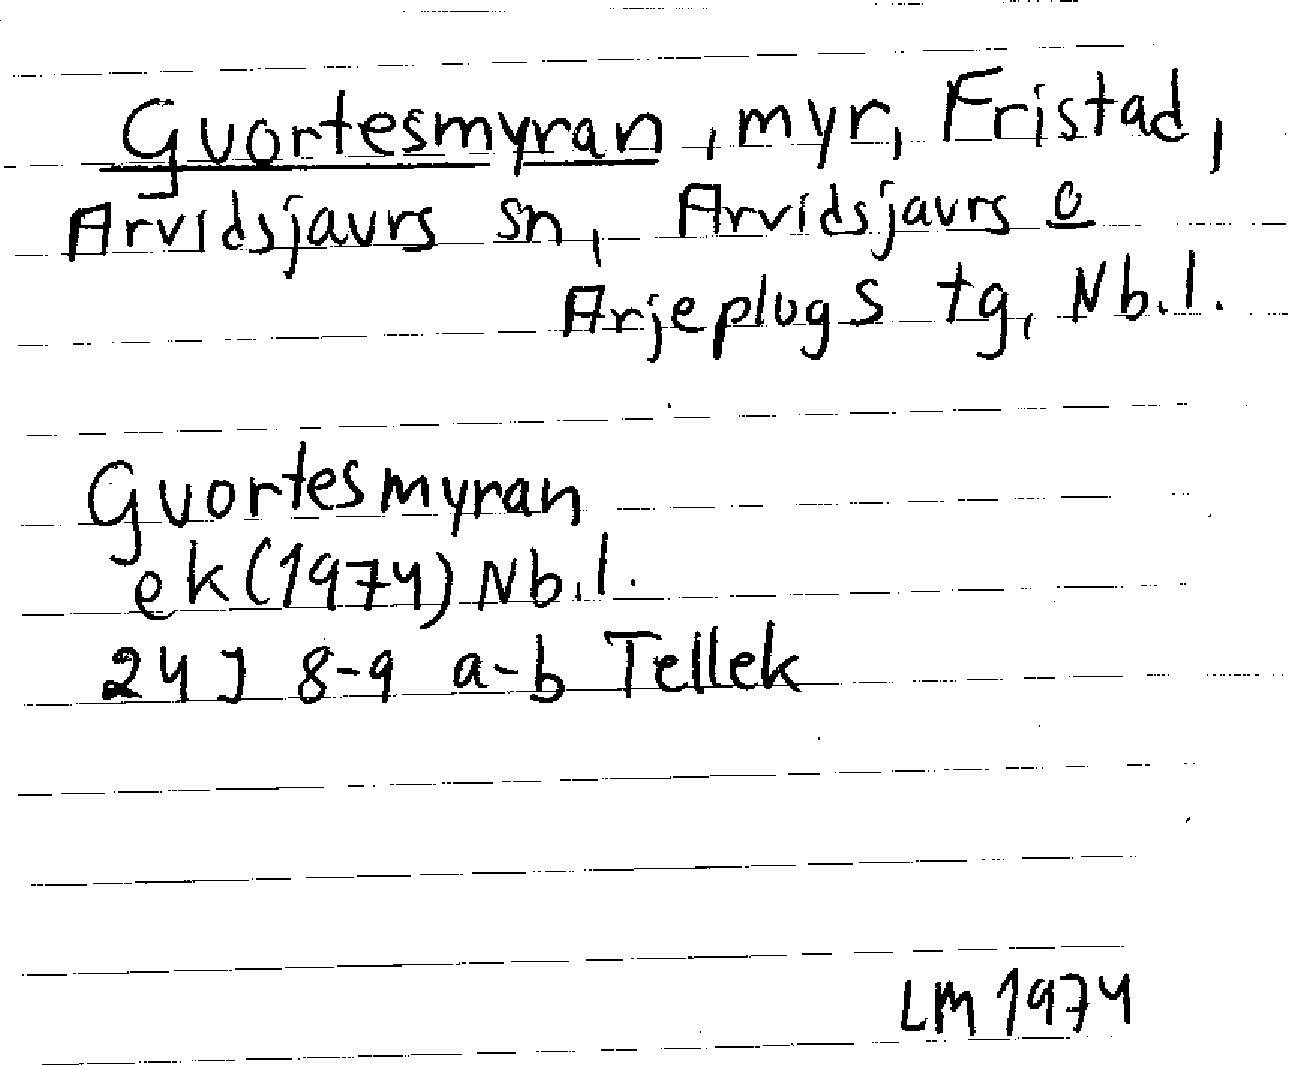 Gvortesmyran, myr, Fristad,
Arvidsjaurs sn, Arvidsjaurs o
Arjeplogs tg, Nb.l.
Gvortesmyran
ek (1974) Nb.l.
24 J 8-9 a-b Tellek
LM 1974